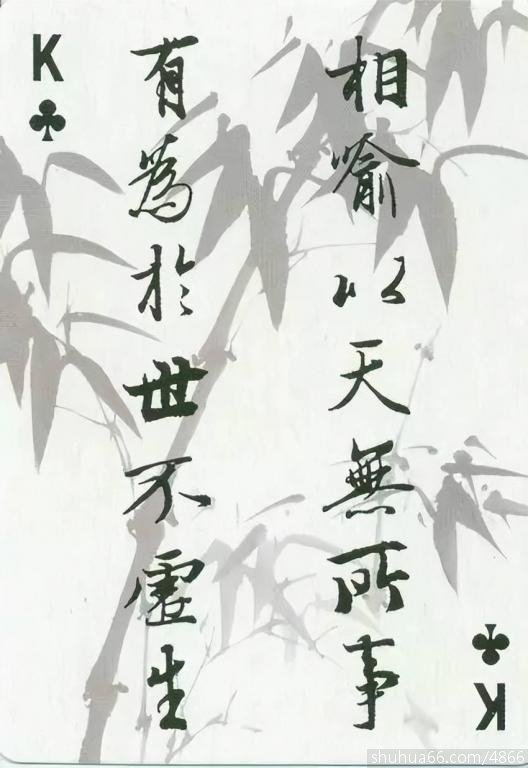 K
相喻以天無所事
有為於世不虛生
K
shuhua66.com/4866